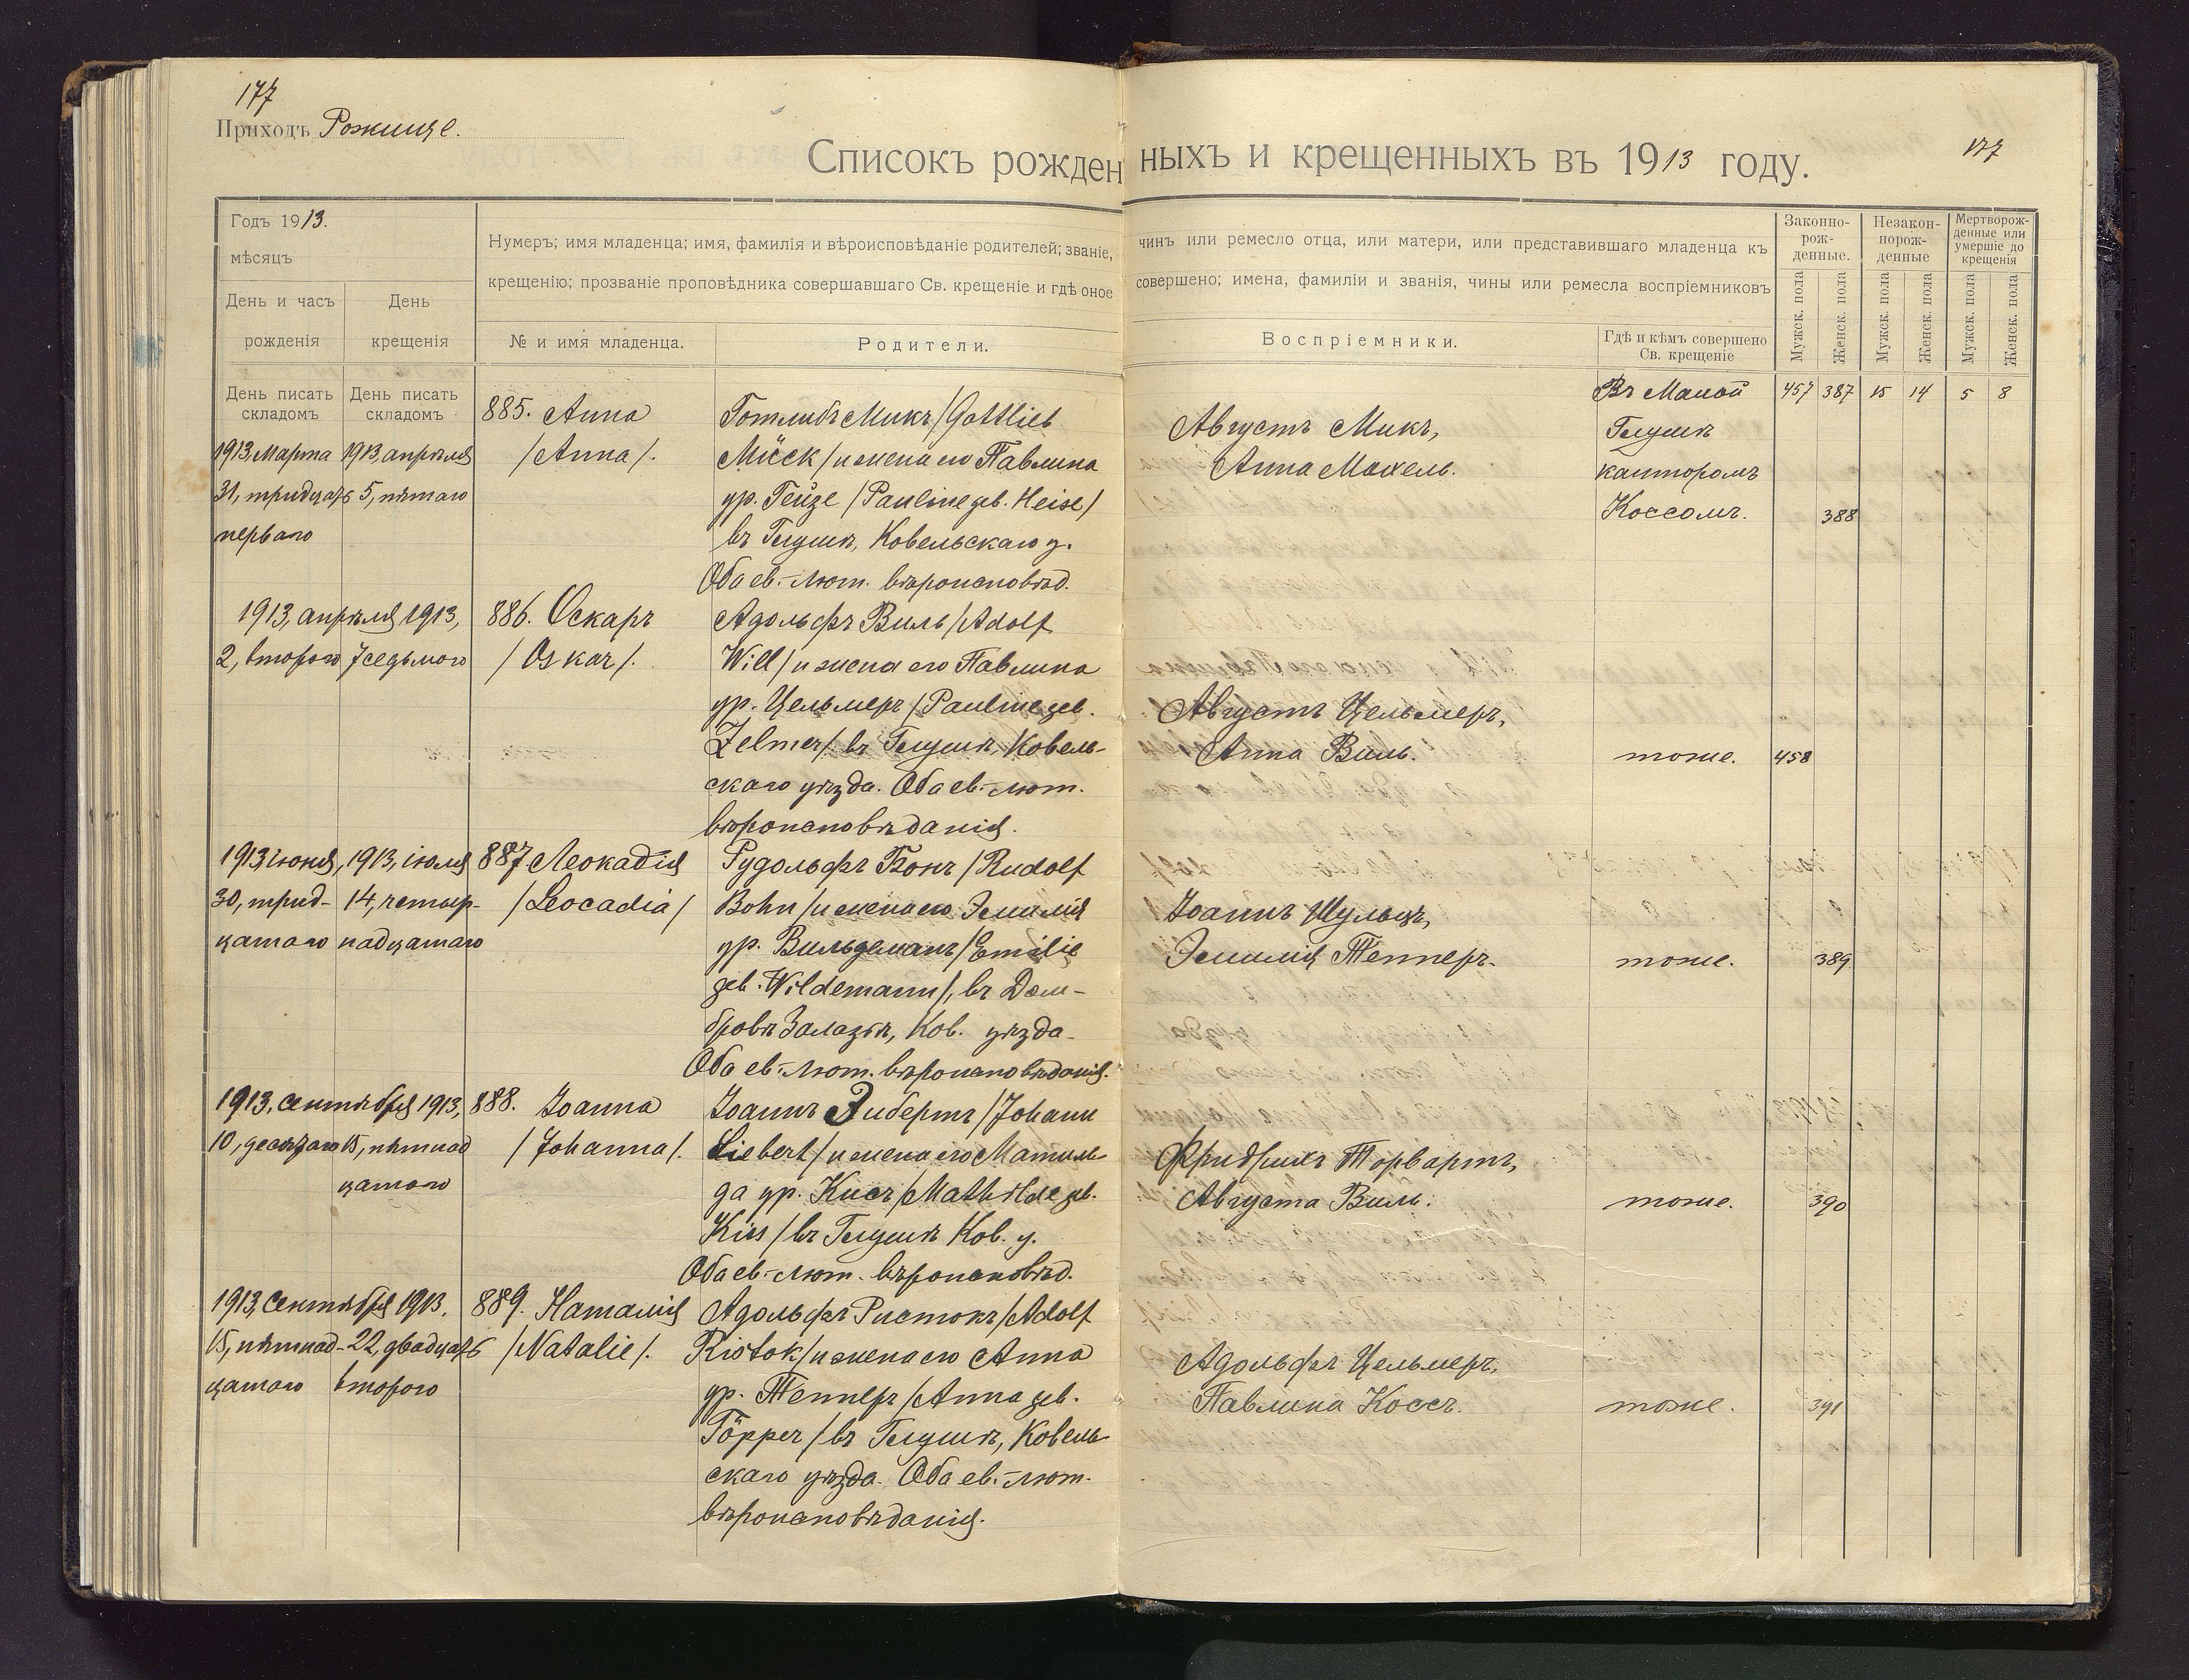 177
Приходъ Рожище.
Списокъ рожденныхъ и крещенныхъ въ 1913 году.
177
Годъ 1913.
мѣсяцъ
День и часъ рожденія
День крещенія
День писать складомъ
День писать складомъ
Нумеръ; имя младенца; имя, фамилія и вѣроисповѣданіе родителей; званіе, чинъ или ремесло отца, или матери, или представившаго младенца къ
крещенію; прозваніе проповѣдника совершавшаго Св. крещеніе и гдѣ оное совершено; имена, фамиліи и званія, чины или ремесла воспріемниковъ
№ и имя младенца.
Родители.
Воспріемники.
Гдѣ и кѣмъ совершено Св. крещеніе
Законно-рож-денные.
Незакон-норож-денные
Мертворож-денные или умершіе до крещенія
Мужск. пола
Женск. пола
Мужск. пола
Женск. пола
Мужск. пола
Женск. пола
457 387 15 14 5 8
1913, марта
31, тридцать
перваго
1913, апрѣля
5, пятаго
885. Анна
/Anna/.
Готлибъ Микъ /Gottlieb
Mück/ и жена его Павлина
ур. Гейзе /Pauline geb. Heise/
въ Глушѣ, Ковельскаго у.
Оба ев.-лют. вѣроисповѣд.
Августъ Микъ,
Анна Махель.
Въ Малой
Глушѣ
канторомъ
Коссомъ.
388
1913, апрѣля 1913,
2, второго 7 седьмого
886. Оскаръ
/Oskar/.
Адольфъ Виль /Adolf
Will/ и жена его Павлина
ур. Цельмеръ /Pauline geb.
Zelmer/ въ Глушѣ, Ковель-
скаго уѣзда. Оба ев.-лют.
вѣроисповѣданія.
Августъ Цельмеръ,
Анна Виль.
тоже.
458
1913 іюня,
30, трид-
цатаго
1913, іюля
14, четыр-
надцатаго
887 Леокадія
/Leocadia/
Рудольфъ Бонъ /Rudolf
Bohn/ и жена его Эмилія
ур. Вильдеманъ /Emilie
geb. Wildemann/, въ Дом-
бровѣ Залазьѣ, Ков. уѣзда.
Оба ев.-лют. вѣроисповѣданія.
Іоаннъ Шульцъ,
Эмилія Тепперъ.
тоже.
389
1913, сентября 1913,
10, десятаго 15, пятнад
цатаго
888. Іоанна
/Johanna/.
Іоаннъ Зибертъ /Johann
Siebert/ и жена его Матиль-
да ур. Кисъ /Mathilde geb.
Kiss/ въ Глушѣ Ков. у.
Оба ев.-лют. вѣроисповѣд.
Фридрихъ Торвартъ,
Августа Виль.
тоже.
390
1913, сентября 1913.
15, пятнад- 22, двадцать
цатаго второго
889. Наталія
/Natalie/.
Адольфъ Ристокъ /Adolf
Ristok/ и жена его Анна
ур. Тепперъ /Anna geb.
Töpper/ въ Глушѣ, Ковель-
скаго уѣзда. Оба ев.-лют.
вѣроисповѣданія.
Адольфъ Цельмеръ,
Павлина Коссъ.
тоже.
391